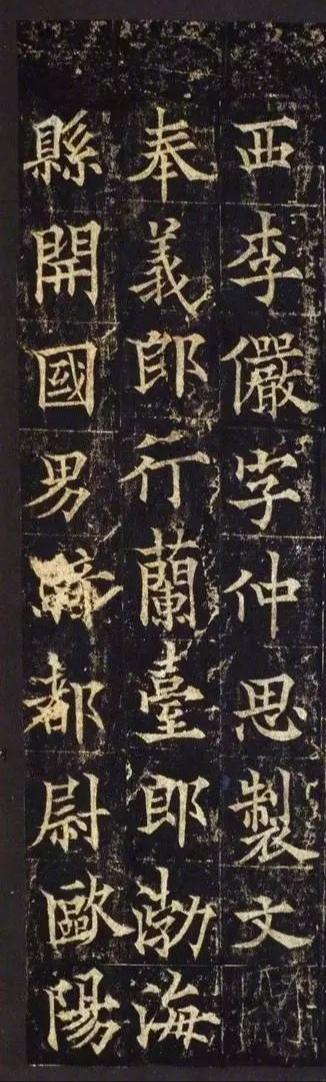 西李儼字仲思製文
奉義郎行蘭臺郎渤海
縣開國男都尉歐陽